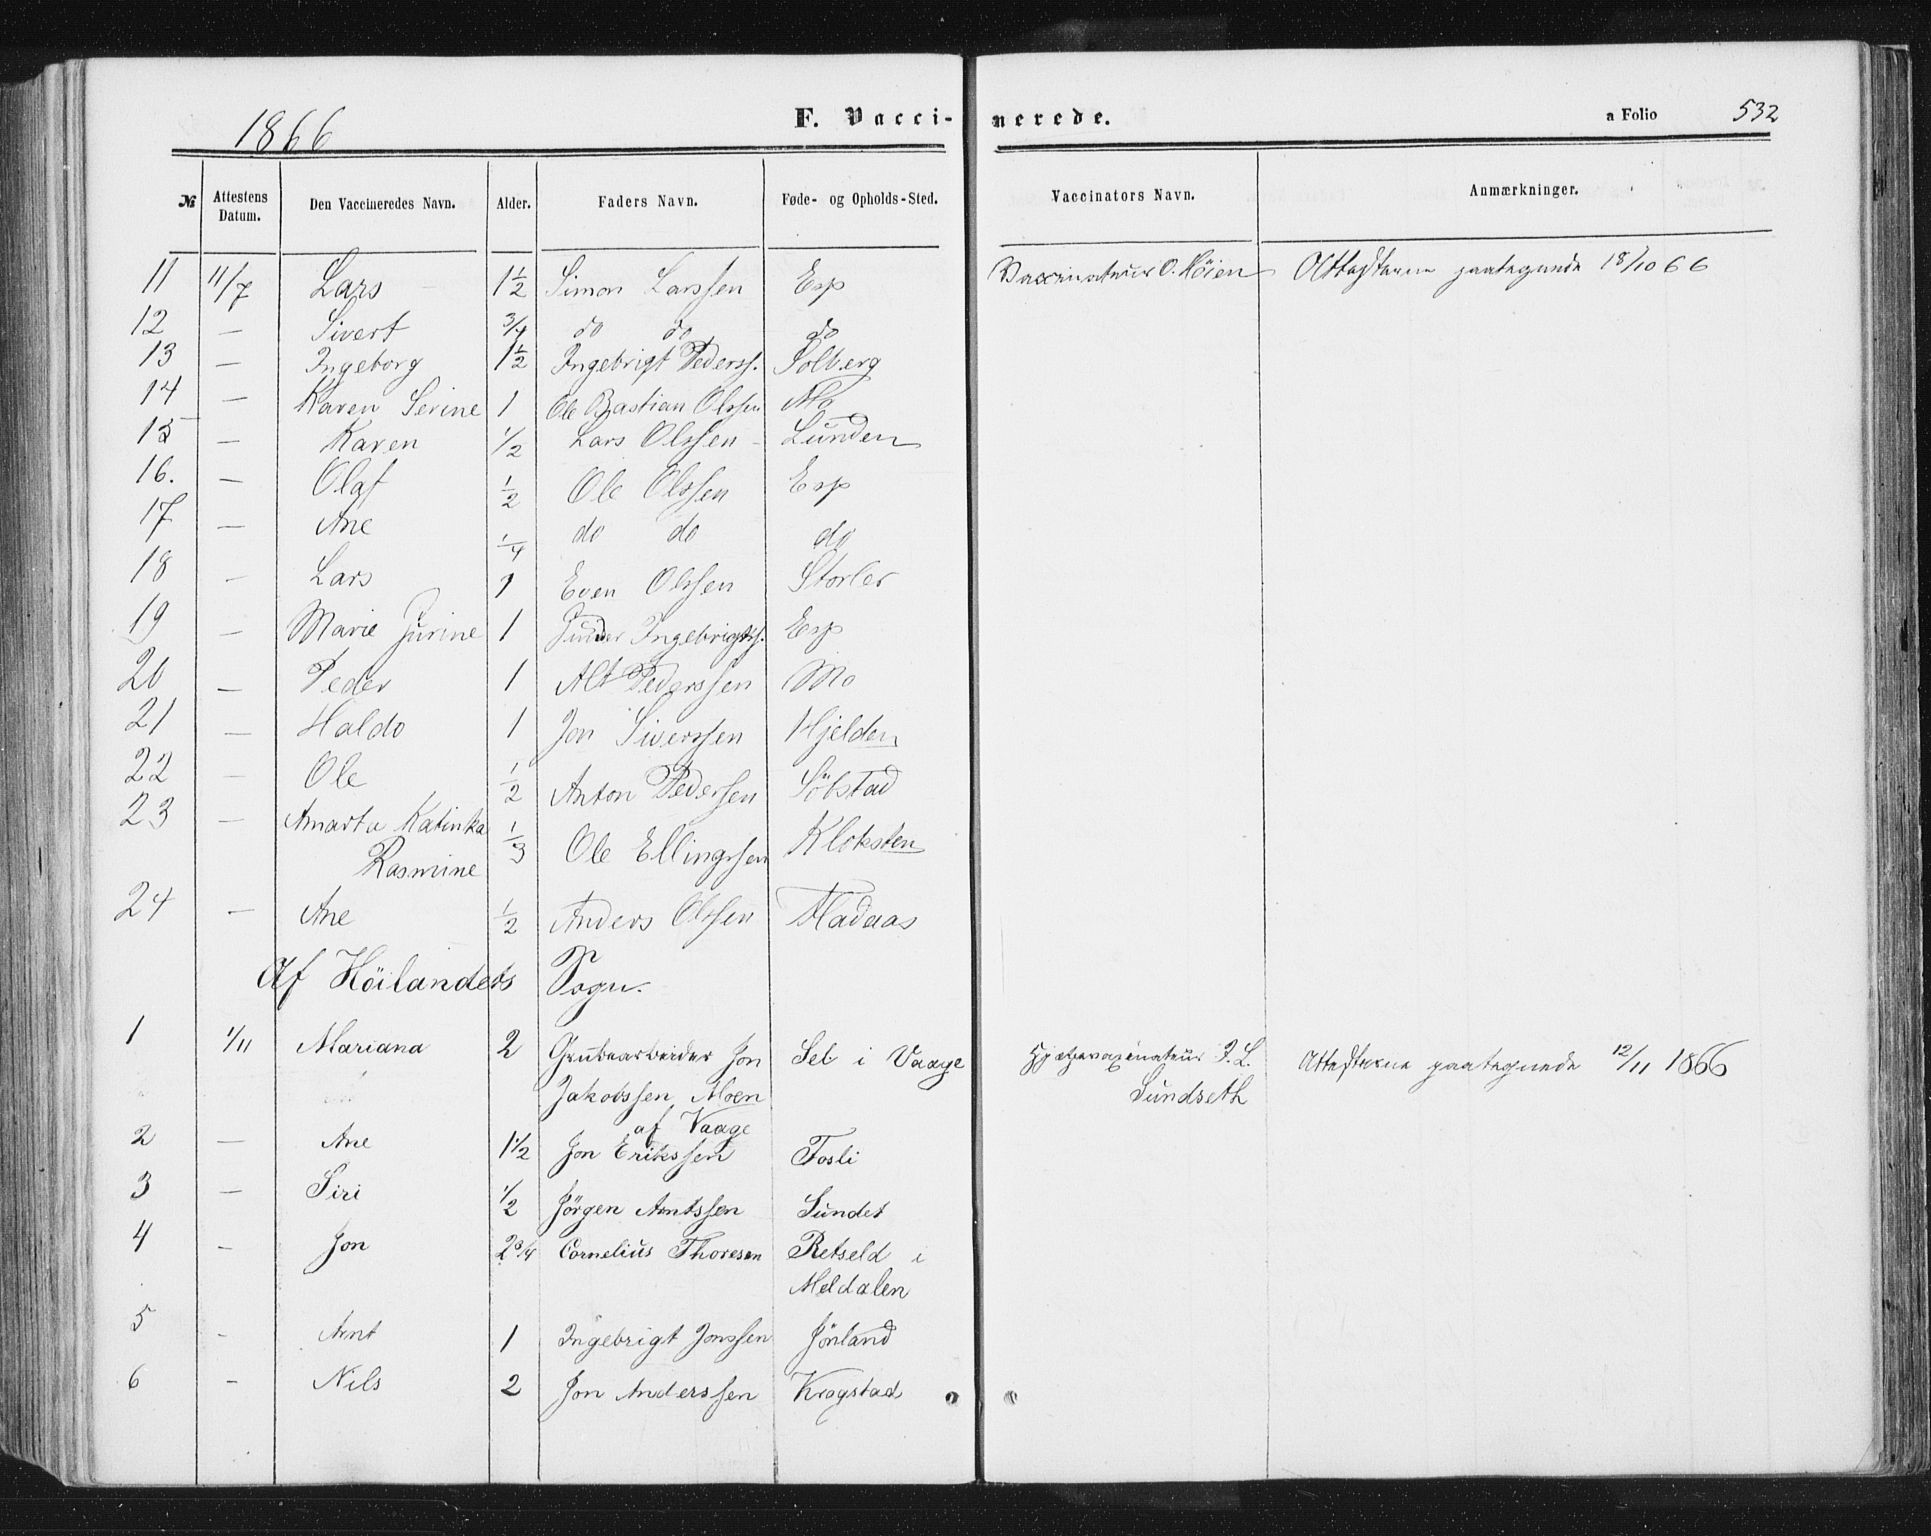 1866 F. Vaccinerede. a Folio 532
№ Attestens Datum. Den Vaccineredes Navn. Alder. Faders Navn. Føde- og Opholds-Sted. Vaccinators Navn. Anmærkninger.
11 11/7 Lars 1½ Simon Larssen Esp Vaxinateur O. Höien Attesterne paategnede 18/10 66
12 — Sivert ¾ do do do
13 — Ingeborg 1½ Ingebrigt Pederss. Solberg
14 — Karen Serine 1 Ole Bastian Olssen Mo
15 — Karen ½ Lars Olssen Lunden
16. — Olaf ½ Ole Olssen Esp
17 — Ane ¼ do do do
18 — Lars 1 Even Olssen Storler
19 — Marie Jurine 1 Ingebrigtss. Esp
20 — Peder 1 Alt Pederssen Mo
21 — Haldo 1 Jon Siverssen Hjelden
22 — Ole ½ Anton Pedersen Söbstad
23 — Amarta Katinka ⅓ Ole Ellingssen Kloksten
Rasmine
24 — Ane ½ Anders Olssen Fladaas
Af Höilandets Sogn.
1 1/11 Mariana 2 Grubearbeider Jon Sel i Vaage Hjælpevaxinateur J. L. Attesterne paategnede 12/11 1866
Jakobssen Moen Sundseth
af Vaage
2 — Ane 1½ Jon Erikssen Fosli
3 — Siri ½ Jörgen Arntssen Sundet
4 - Jon 2¾ Cornelius Thoresen Retseld i
Meldalen
5 - Arnt 1 Ingebrigt Jonssen Jönland
6 - Nils 2 Jon Anderssen Kragstad